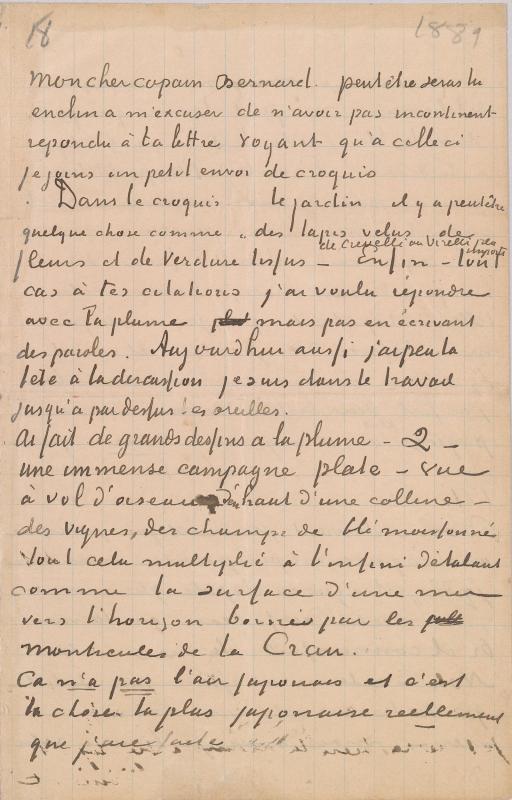 18 1889
Mon cher copain Bernard. peutêtre seras tu
enclin a m'excuser de n'avoir pas incontinent
repondu à ta lettre voyant qu'a celle ci
je joins un petit envoi de croquis
. Dans le croquis le jardin il y a peutêtre
quelque chose comme „des tapis velus de
de Crivelli ou Virelli peu importe
fleurs et de verdure tissus – enfin – tout
cas à tes citations j'ai voulu répondre
avec la plume mais pas en écrivant
des paroles. Aujourdhui aussi j'ai peu la
tête à la discussion je suis dans le travail
jusqu'a par dessus les oreilles.
Ai fait de grands dessins a la plume – 2 –
une immense campagne plate – vue
à vol d'oiseau du haut d'une colline –
des vignes, des champs de blé moissonné
tout cela multiplié à l'infini s'étalant
comme la surface d'une mer
vers l'horizon borné par les
monticules de la Crau.
Ca n'a pas l'air japonais et c'est
la chose la plus japonaise reellement
que j'aie faite